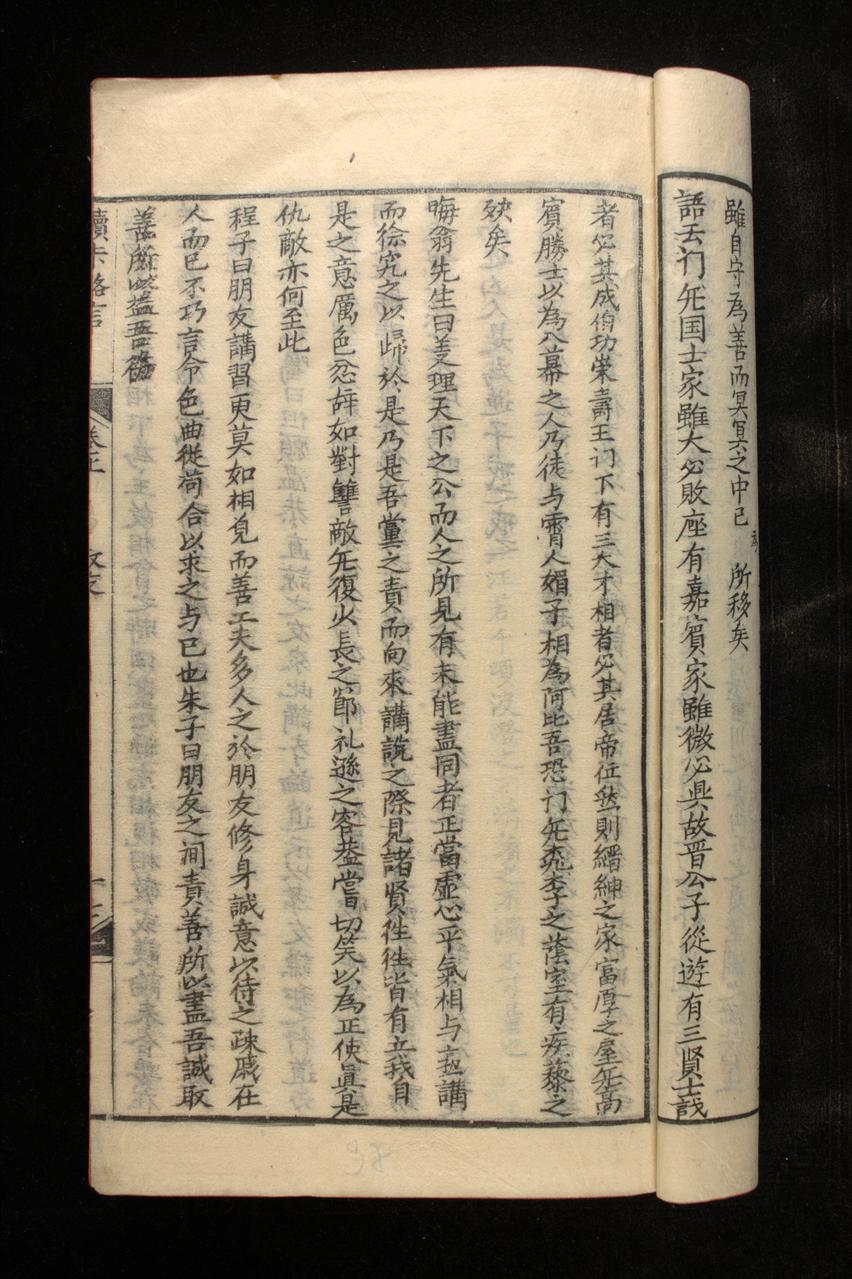 雖自守為善而冥冥之中已 所移矣
語云门旡国士家雖大必敗座有嘉賓家雖微必興故晋公子從遊有三贤士識
者必其成伯功荣壽王门下有三大才相者必其居帝位然則縉紳之家富厚之屋旡高
賓勝士以為入幕之人乃徒与霄人媚子相為阿比吾恐门旡桃李之蔭室有疾藜之
殃矣
晦翁先生曰羑理天下之公而人之所見有未能盡同者正當虚心平氣相与 講
而徐究之以歸於是乃是吾黨之責而向來講說之際見諸贤徃徃皆有立我自
是之意厲色忿辝如對讐敵旡復少長之節礼遜之容盖嘗切笑以為正使眞是
仇敵亦何至此
程子曰朋友講習更莫如相𮗚而善工夫多人之於朋友修身誠意以待之疎戚在
人而已不巧言令色曲從荀合以求之与已也朱子曰朋友之间責善所以盡吾誠取
善所以益吾德
讀書格言 卷上 取友